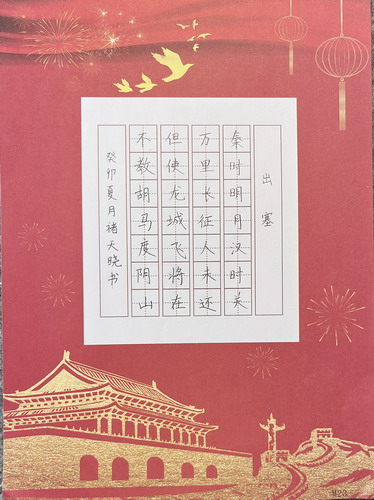 出塞
秦时明月汉时关
万里长征人未还
但使龙城飞将在
不教胡马度阴山
癸卯夏月褚天晓书
M23